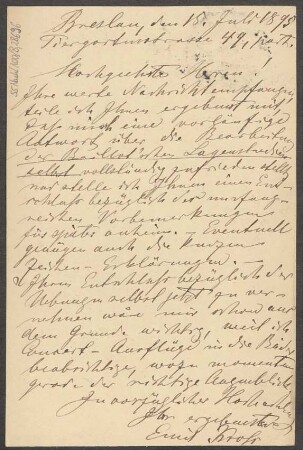 Breslau, den 15. Juli 1898.
Tiergartenstrasse 49,
Hochgeehrte Herren!
Ihre werte Nachricht empfangen,
teile ich Ihnen ergebenst mit,
dass mich eine vorläufige
Antwort über die Bearbeitung
der Baillot'schen Lagenstudien
selbst vollständig zufrieden stellt,
nur stelle ich Ihnen einen Ent-
schluss bezüglich der umfang-
reichen Vorbemerkungen
für später anheim. – Eventuell
genügen auch die kurzen
Zeichen-Erklärungen. –
Ihren Entschluss bezüglich der
Uebungen selbst jetzt zu ver-
nehmen wäre mir schon aus
dem Grunde wichtig, weil ich
Concert-Ausflüge in die Bäder
beabsichtige, wozu momentan
gerade der richtige Augenblick.
In vorzüglicher Hochachtung
Ihr ergebenster
Emil Kross